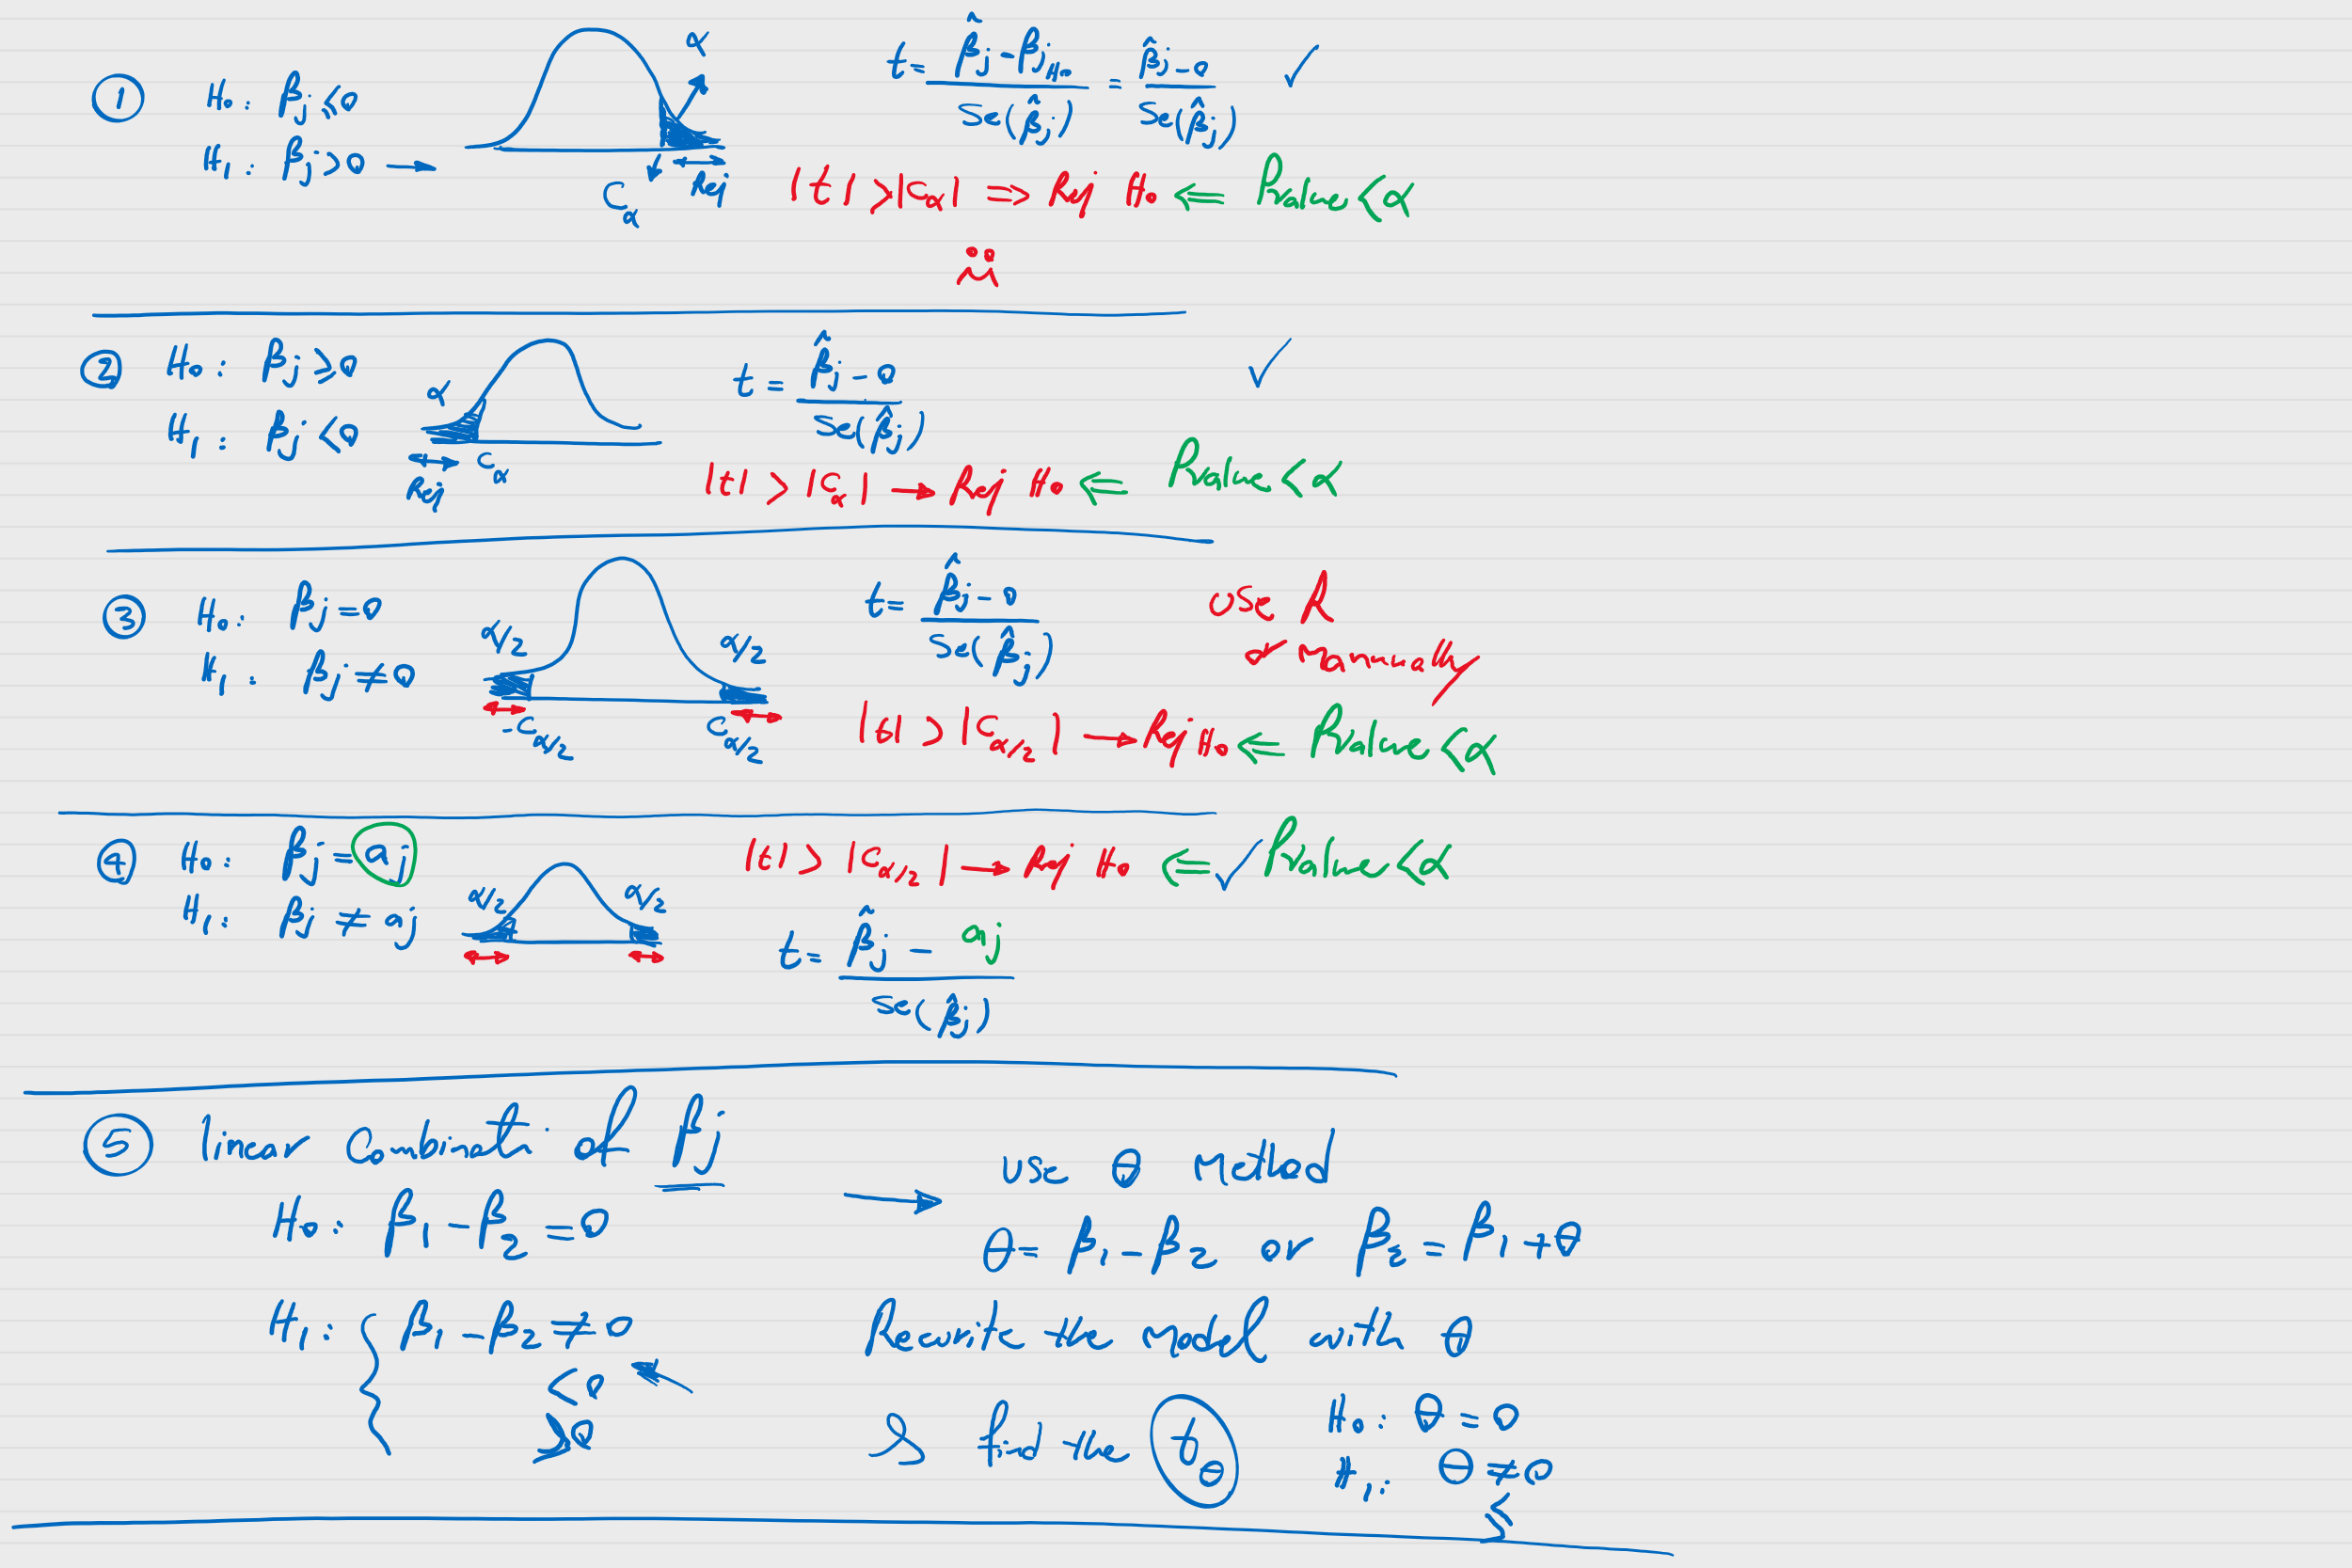 ① H₀: βj ≤ 0
H₁: βj > 0 →
α
Cα Rej
t = (β̂j - βjH₀) / se(β̂j) = (β̂j - 0) / se(β̂j) ✓
|t| > |Cα| ⇒ Rej H₀ ⇐ Pvalue < α
② H₀: βj ≥ 0
H₁: βj < 0
α
Rej Cα
t = (β̂j - 0) / se(β̂j) ✓
|t| > |Cα| → Rej H₀ ⇐ Pvalue < α
③ H₀: βj = 0
H₁: βj ≠ 0
α/2 α/2
-Cα/2 Cα/2
t = (β̂j - 0) / se(β̂j)
use R
or manually
|t| > |Cα/2| → Rej H₀ ⇐ Pvalue < α
④ H₀: βj = aj
H₁: βj ≠ aj
α/2 α/2
|t| > |Cα/2| → Rej H₀ ⇐ ✓ Pvalue < α
t = (β̂j - aj) / se(β̂j)
⑤ linear Combinati of βj
H₀: β₁ - β₂ = 0
H₁: { β₁ - β₂ ≠ 0
< 0 ←
> 0
→ use θ Method
θ = β₁ - β₂ or β₂ = β₁ + θ
Rewrite the model with θ
& find the tθ
H₀: θ = 0
H₁: θ ≠ 0